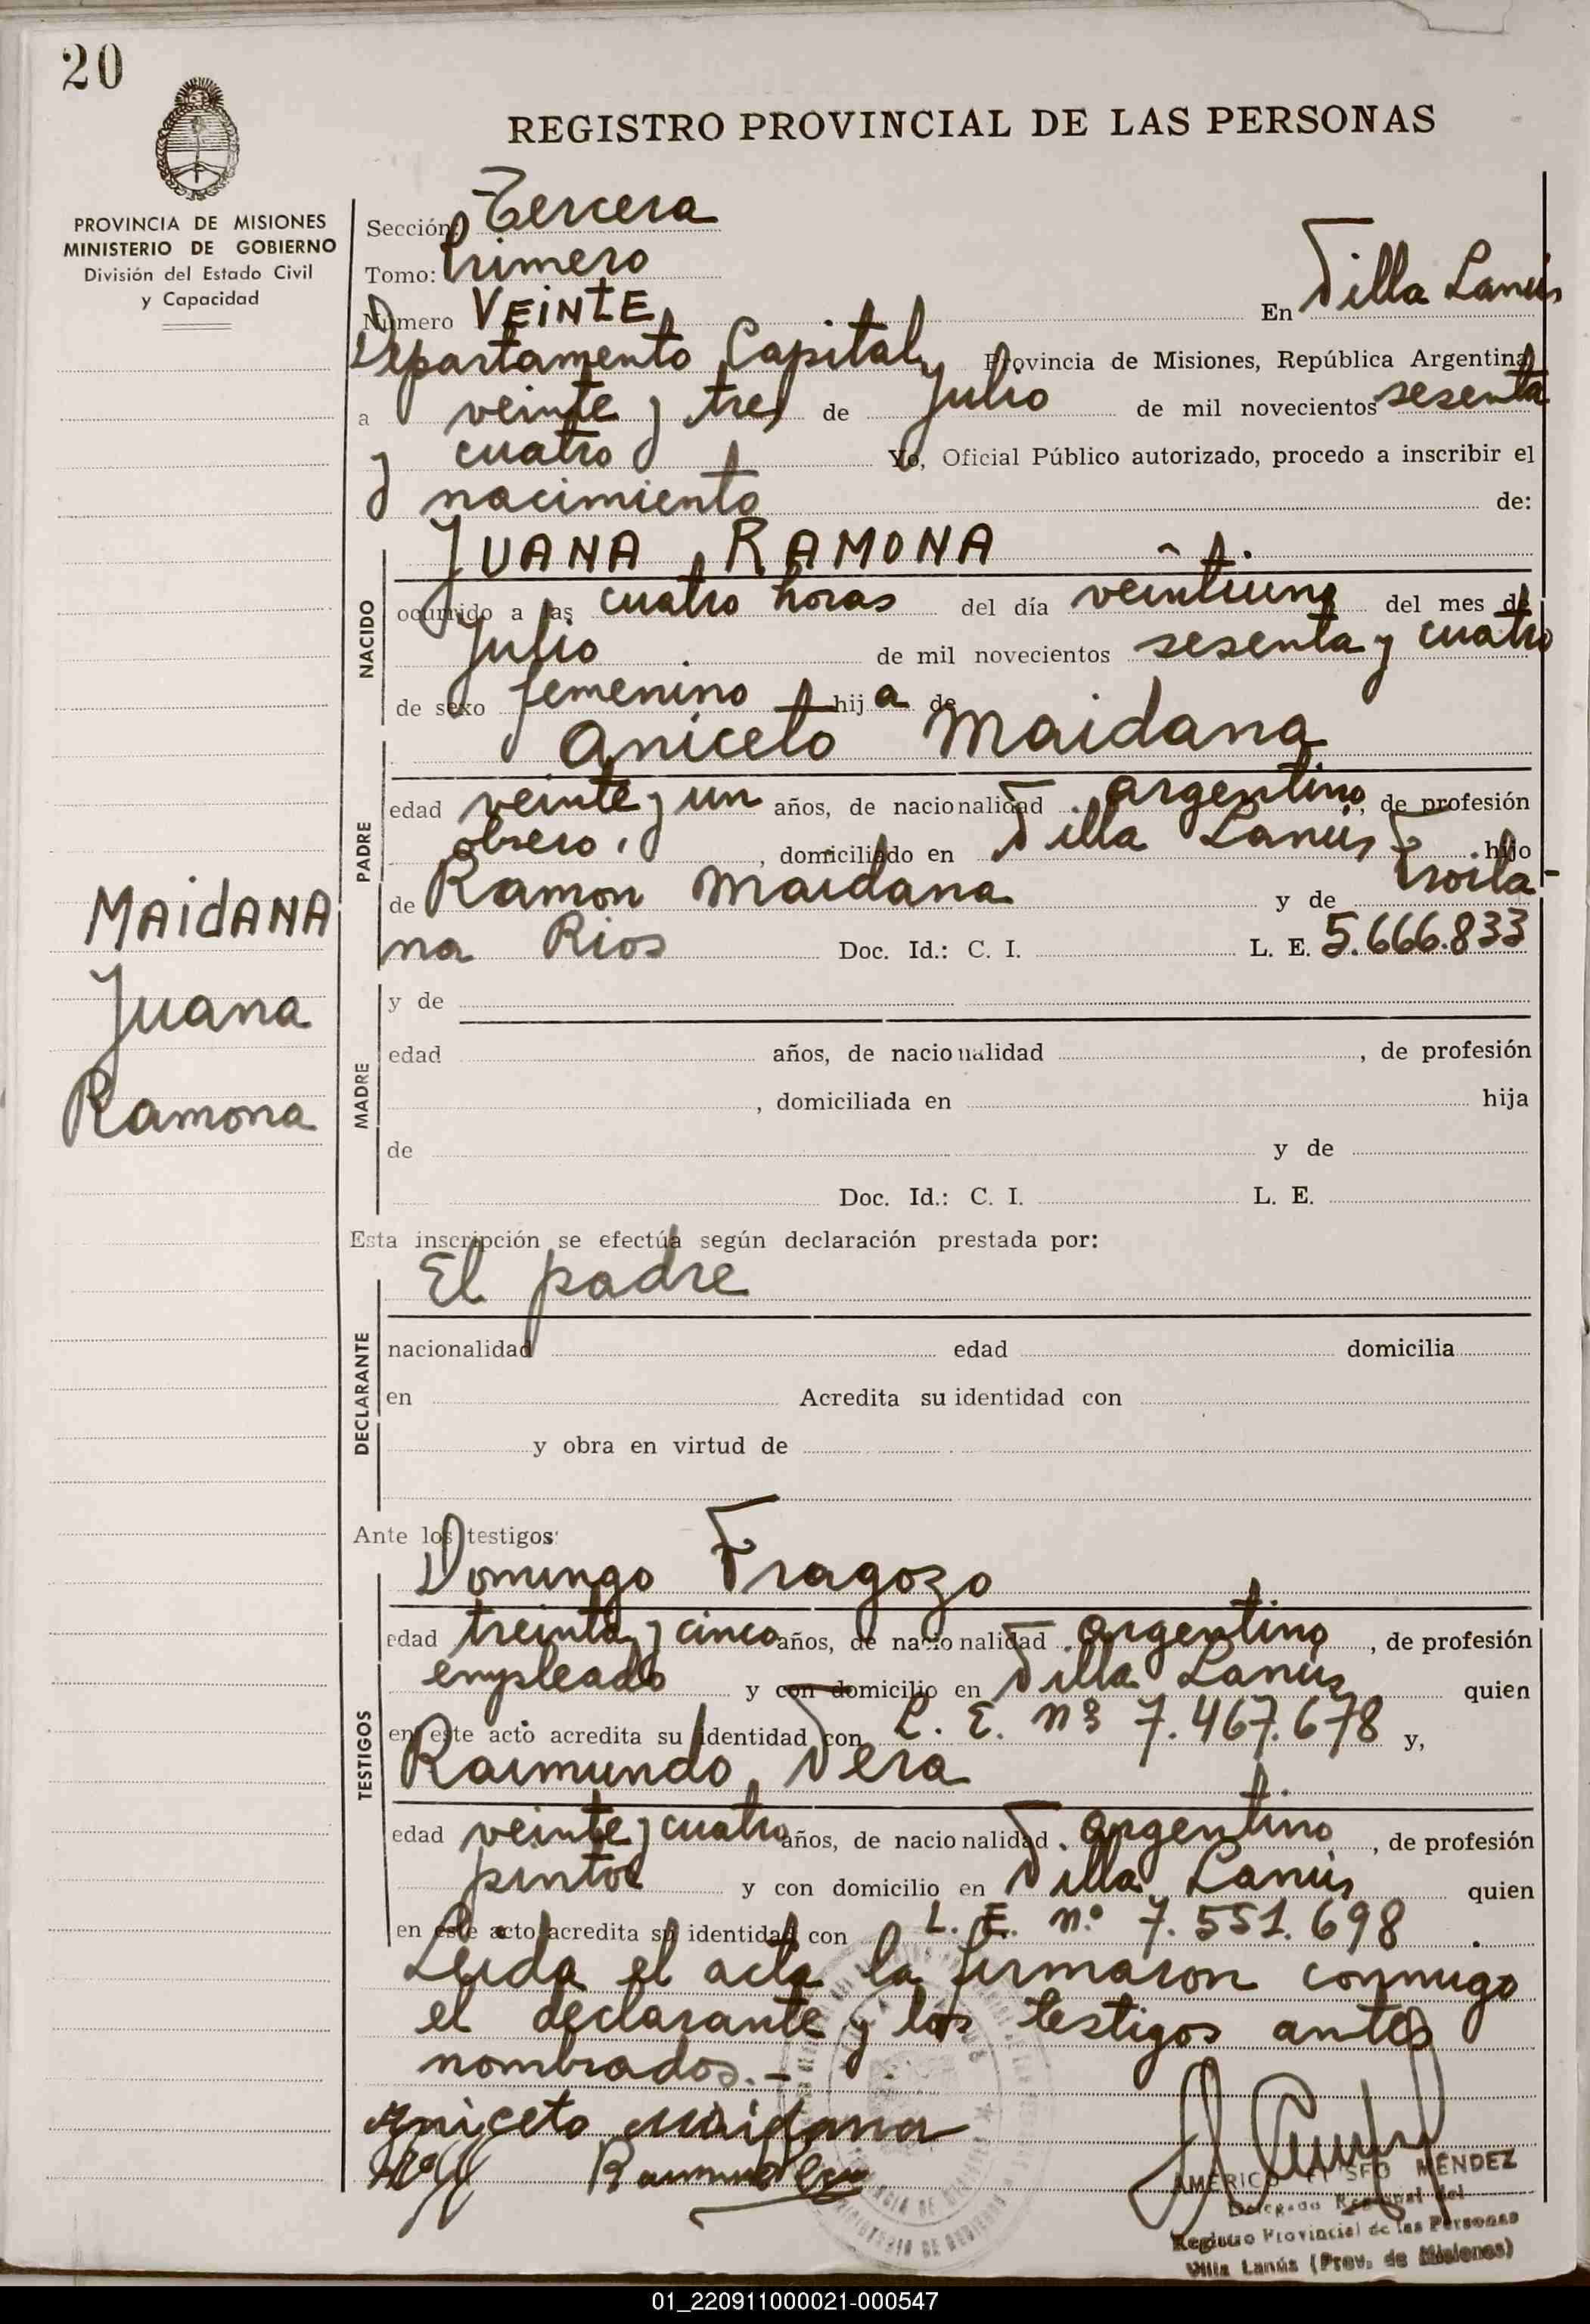 20
REGISTRO PROVINCIAL DE LAS PERSONAS
PROVINCIA DE MISIONES
MINISTERIO DE GOBIERNO
División del Estado Civil
y Capacidad
Sección: Tercera
Tomo: Primero
Número VEINTE En Villa Lanús
Departamento Capital, Provincia de Misiones, República Argentina
a veinte y tres de Julio de mil novecientos sesenta
y cuatro Yo, Oficial Público autorizado, procedo a inscribir el
nacimiento de:
JUANA RAMONA
NACIDO
ocurrido a las cuatro horas del día veintiuno del mes de
Julio de mil novecientos sesenta y cuatro
de sexo femenino hija de
Aniceto Maidana
PADRE
edad veinte y un años, de nacionalidad argentino, de profesión
obrero, domiciliado en Villa Lanús hijo
de Ramon Maidana y de Troila-
na Rios Doc. Id.: C. I. L. E. 5.666.833
MAIDANA
Juana
Ramona
MADRE
y de
edad años, de nacionalidad , de profesión
, domiciliada en hija
de y de
Doc. Id.: C. I. L. E.
Esta inscripción se efectúa según declaración prestada por:
El padre
DECLARANTE
nacionalidad edad domicilia
en Acredita su identidad con
y obra en virtud de
Ante los testigos:
Domingo Fragozo
TESTIGOS
edad treinta y cinco años, de nacionalidad argentino, de profesión
empleado y con domicilio en Villa Lanús quien
en este acto acredita su identidad con L. E. nº 7.467.678 y,
Raimundo Vera
edad veinte y cuatro años, de nacionalidad argentino, de profesión
pintor y con domicilio en Villa Lanús quien
en este acto acredita su identidad con L. E. n.º 7.551.698.
Leida el acta la firmaron conmigo
el declarante y los testigos antes
nombrados.-
Aniceto Maidana
AMÉRICO MÉNDEZ
Delegado Regional del
Registro Provincial de las Personas
Villa Lanús (Prov. de Misiones)
01_220911000021-000547